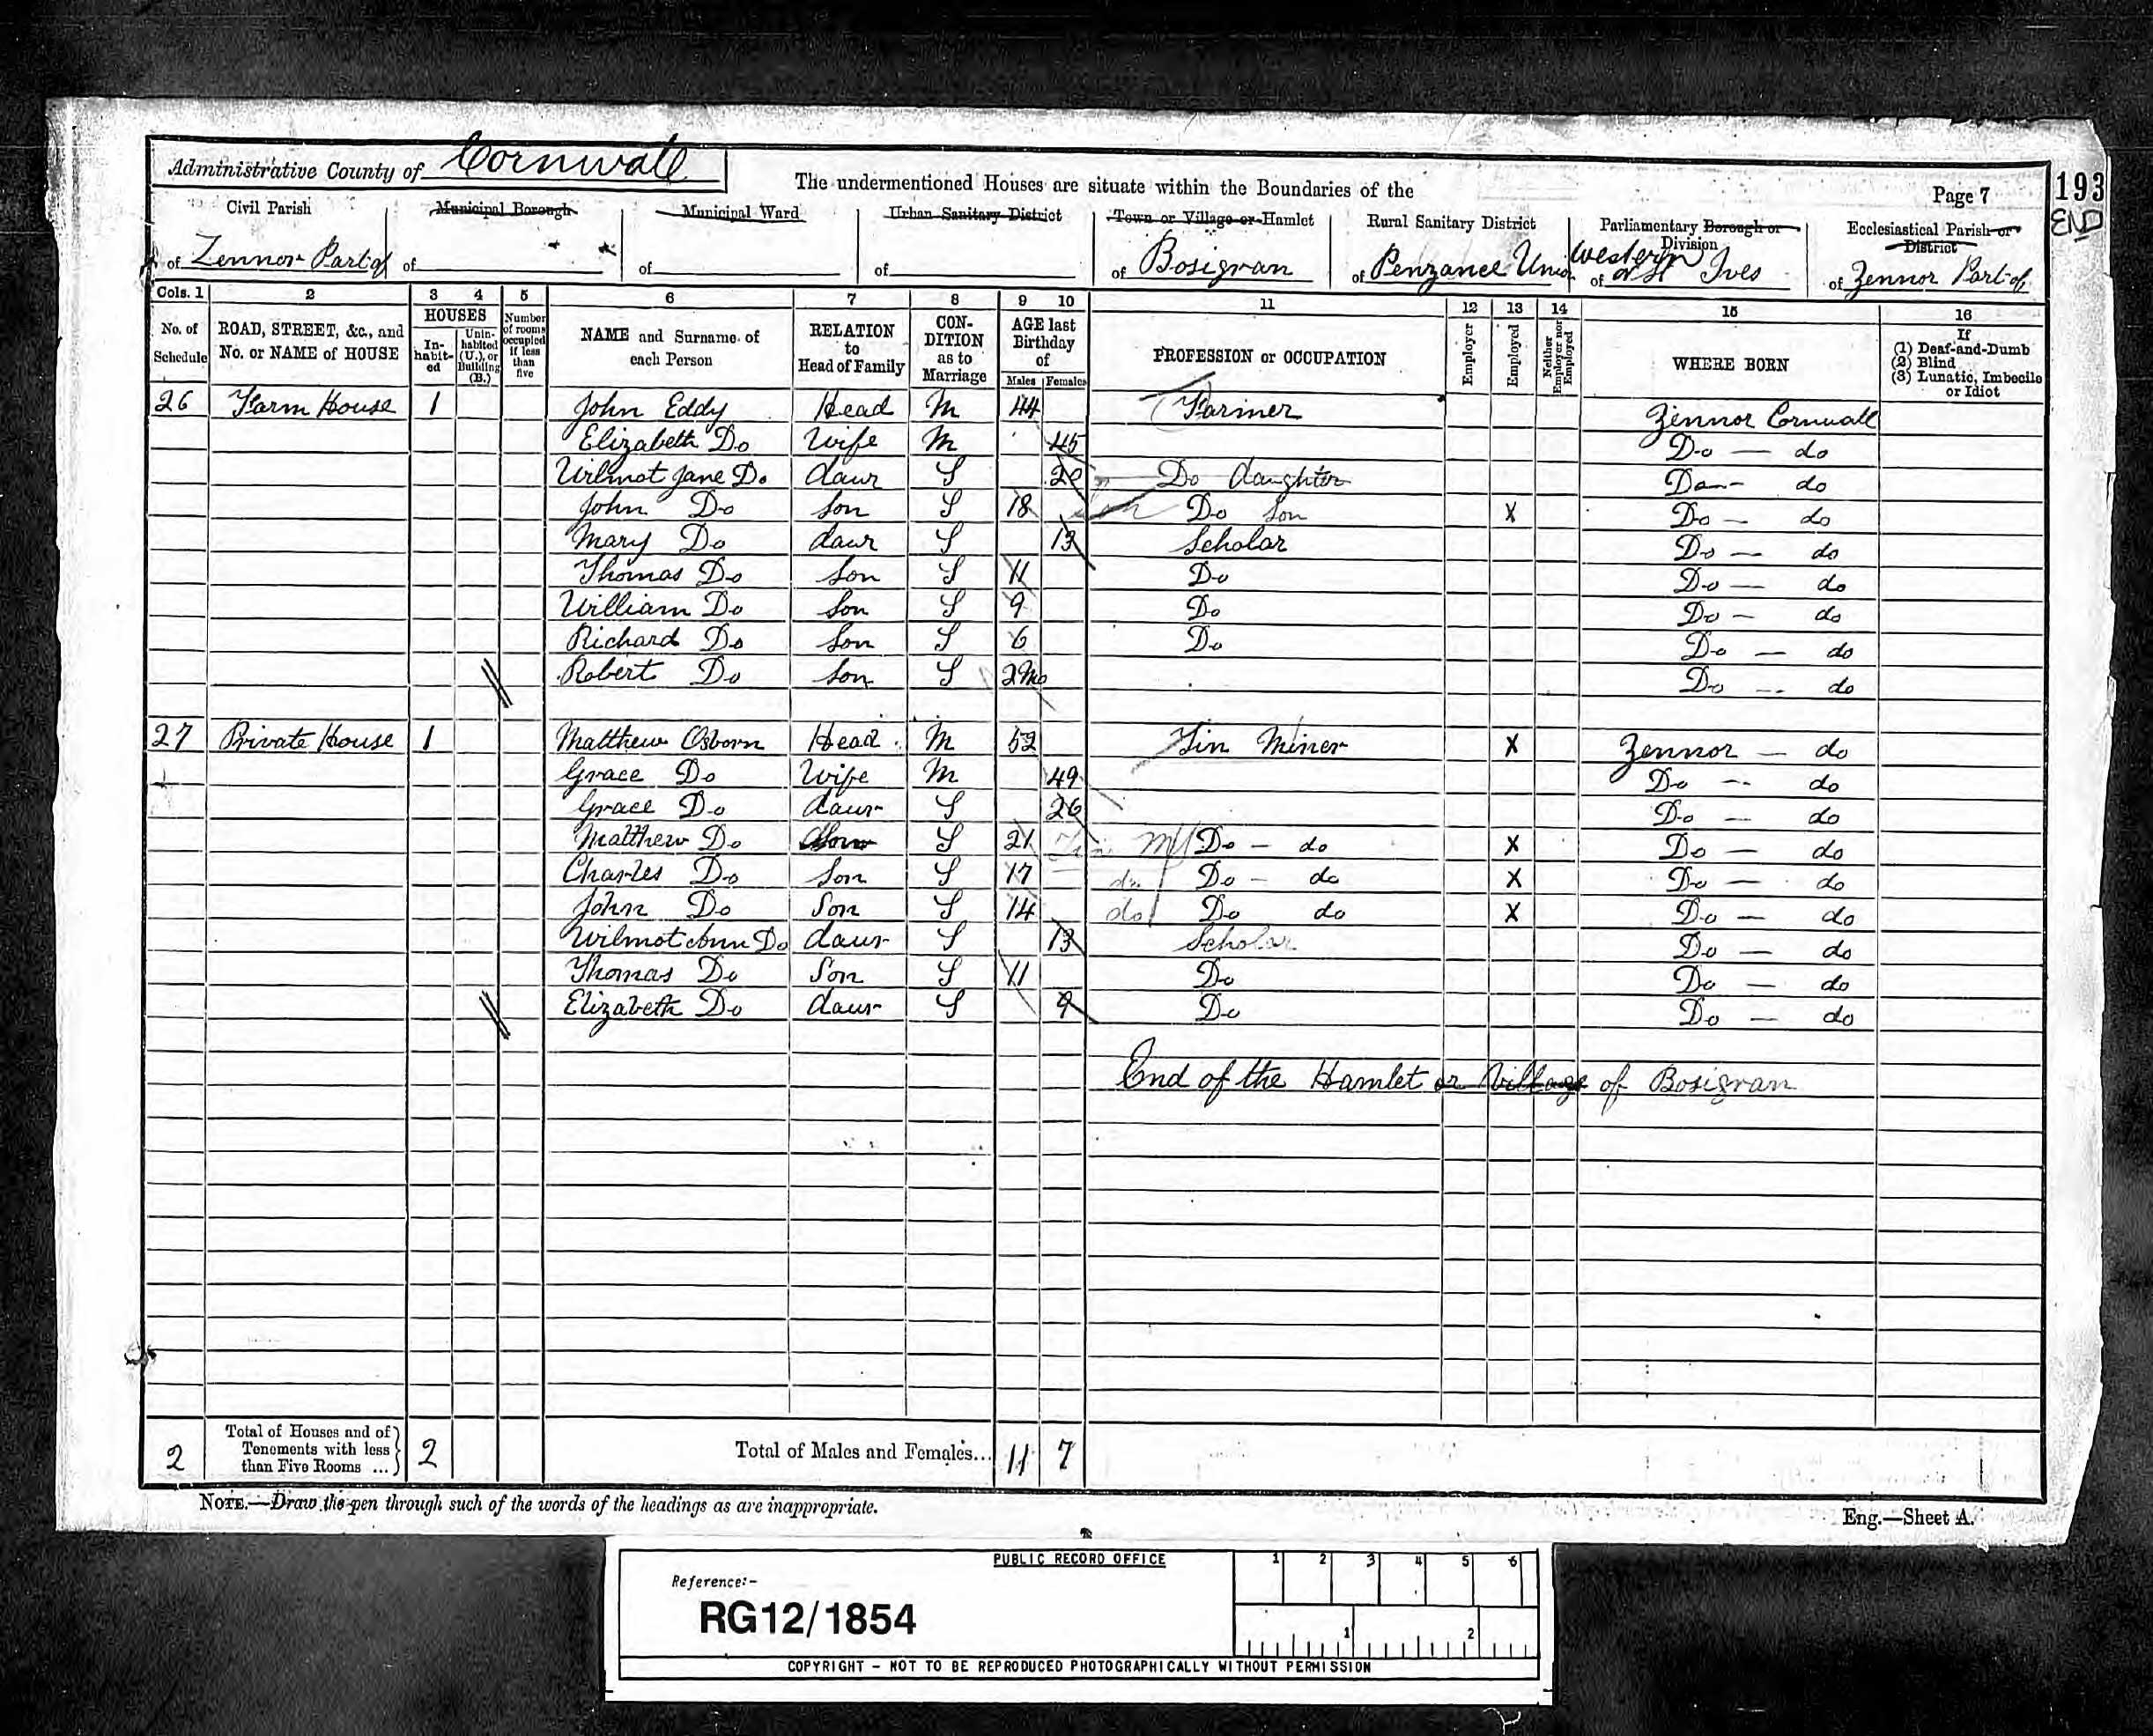 Administrative County of Cornwall
The undermentioned Houses are situate within the Boundaries of the
Page 7
193
END
Civil Parish
Municipal Borough
Municipal Ward
Urban Sanitary District
Town or Village or Hamlet
Rural Sanitary District
Parliamentary Borough or Division
Ecclesiastical Parish or District
of Zennor Part of
of
of
of
of Bosigran
of Penzance Union
of Western or St Ives
of Zennor Part of
Cols. 1 2 3 4 5 6 7 8 9 10 11 12 13 14 15 16
No. of Schedule
ROAD, STREET, &c., and No. or NAME of HOUSE
HOUSES
Inhabited
Uninhabited (U.), or Building (B.)
Number of rooms occupied if less than five
NAME and Surname of each Person
RELATION to Head of Family
CONDITION as to Marriage
AGE last Birthday of
Males Females
PROFESSION or OCCUPATION
Employer
Employed
Neither Employer nor Employed
WHERE BORN
If
(1) Deaf-and-Dumb
(2) Blind
(3) Lunatic, Imbecile or Idiot
26 Farm House 1 John Eddy Head M 44 Farmer Zennor Cornwall
Elizabeth Do Wife M 45 Do — do
Wilmot Jane Do daur S 20 Do daughter Do — do
John Do Son S 18 Do Son X Do — do
Mary Do daur S 13 Scholar Do — do
Thomas Do Son S 11 Do Do — do
William Do Son S 9 Do Do — do
Richard Do Son S 6 Do Do — do
Robert Do Son S 2Mo Do — do
27 Private House 1 Matthew Osborn Head M 52 Tin Miner X Zennor — do
Grace Do Wife M 49 Do — do
Grace Do daur S 26 Do — do
Matthew Do Son S 21 Do — do X Do — do
Charles Do Son S 17 do Do — do X Do — do
John Do Son S 14 do Do do X Do — do
Wilmot Ann Do daur S 13 Scholar Do — do
Thomas Do Son S 11 Do Do — do
Elizabeth Do daur S 9 Do Do — do
End of the Hamlet or Village of Bosigran
2 Total of Houses and of Tenements with less than Five Rooms ... 2 Total of Males and Females... 11 7
NOTE.—Draw the pen through such of the words of the headings as are inappropriate.
Eng.—Sheet A.
PUBLIC RECORD OFFICE
1 2 3 4 5 6
Reference:-
RG12/1854
1 2
COPYRIGHT - NOT TO BE REPRODUCED PHOTOGRAPHICALLY WITHOUT PERMISSION